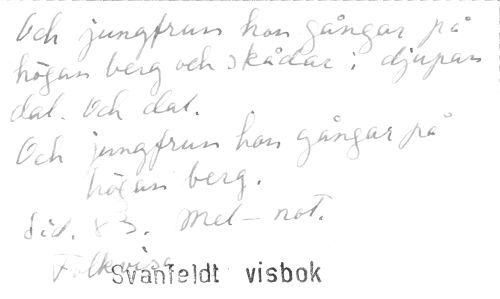 Och jungfrun hon gångar på
högan berg och skådar i djupan
dal. Och dal.
Och jungfrun hon gångar på
högan berg.
Sid. 83. Mel-not.
Folkvisa
Svanfeldt visbok